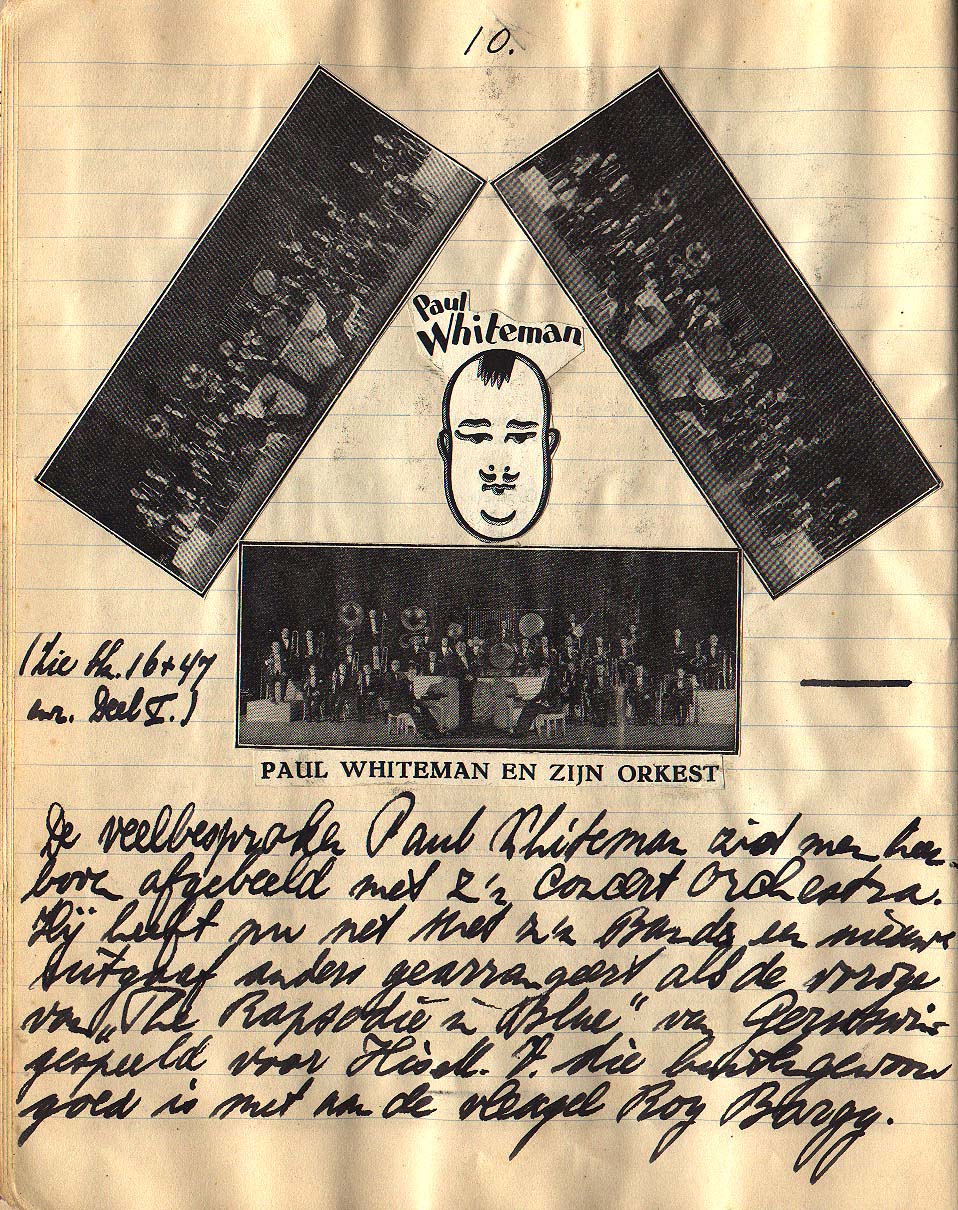 10.
Paul
Whiteman
(Zie blz. 16 + 47
Deel I.)
PAUL WHITEMAN EN ZIJN ORKEST
De veelbesproken Paul Whiteman zied men hier-
boven afgebeeld met z'n Concert Orchestra.
Hij heeft nu net met z'n Band een nieuwe
uitgaaf anders gearrangeert als de vorige
van „The Rapsodie in Blue" van Gerschwin
gespeeld voor die buitengewoon
goed is met aan de vleugel Roy Bargy.